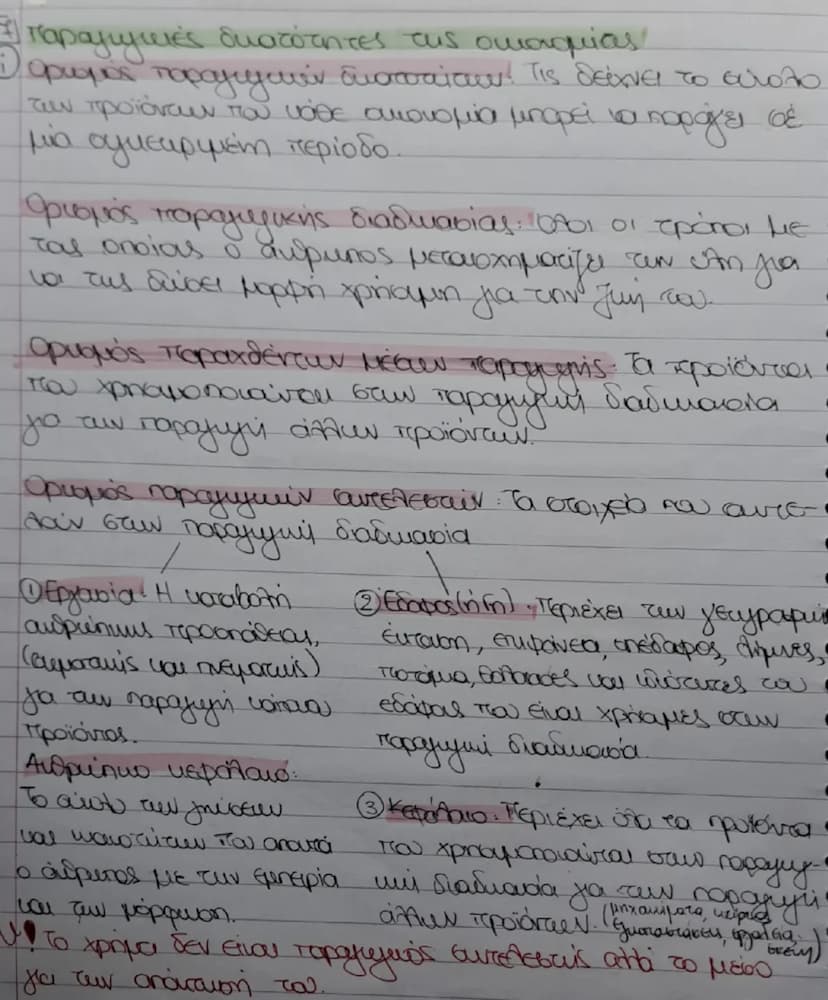 7 Παραγωγικές δυνατότητες της οικονομίας
i) Ορισμός παραγωγικών δυνατοτήτων: Τις δείχνει το σύνολο
των προϊόντων που κάθε οικονομία μπορεί να παράγει σε
μια συγκεκριμένη περίοδο.
Ορισμός παραγωγικής διαδικασίας: Όλοι οι τρόποι με
τους οποίους ο άνθρωπος μετασχηματίζει την ύλη για
να της δώσει μορφή χρήσιμη για την ζωή του.
Ορισμός παραχθέντων μέσων παραγωγής: Τα προϊόντα
που χρησιμοποιούνται στην παραγωγική διαδικασία
για την παραγωγή άλλων προϊόντων.
Ορισμός παραγωγικών συντελεστών: Τα στοιχεία που συντε-
λούν στην παραγωγική διαδικασία
① Εργασία: Η καταβολή
ανθρώπινης προσπάθειας,
(σωματικής και πνευματικής)
για την παραγωγή κάποιου
προϊόντος.
Ανθρώπινο κεφάλαιο:
Το σύνολο των γνώσεων
και ικανοτήτων που αποκτά
ο άνθρωπος με την εμπειρία
και την μόρφωση.
② Έδαφος (ή Γη): Περιέχει την γεωγραφική
έκταση, επιφάνεια, υπέδαφος, λίμνες,
ποτάμια, θάλασσες και ιδιότητες του
εδάφους που είναι χρήσιμες στην
παραγωγική διαδικασία.
③ Κεφάλαιο: Περιέχει όλα τα προϊόντα
που χρησιμοποιούνται στην παραγωγι-
κή διαδικασία για την παραγωγή
άλλων προϊόντων. (μηχανήματα, κτίρια,
εγκαταστάσεις, εργαλεία
σκεύη)
! Το χρήμα δεν είναι παραγωγικός συντελεστής αλλά το μέσο
για την απόκτησή του.